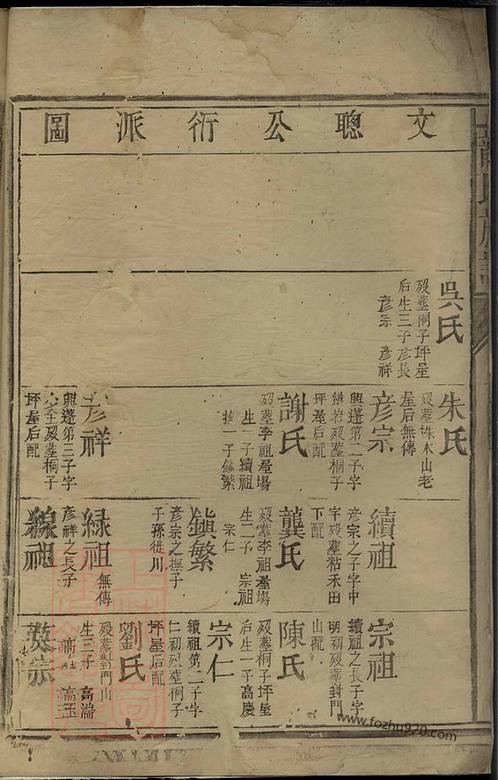 文聰公衍派圖
吳氏
歿塟桐子坪屋
后生三子彥長
彥宗 彥祥
朱氏
歿塟株木山老
屋后無傳
彥宗
興蓬第二子字
歿塟桐子
坪屋后配
謝氏
歿塟李祖屋塲
生一子續祖
撫一子鎮繁
彥祥
興蓬第三子字
歿塟桐子
坪屋后配
續祖
彥宗之子字中
宇歿塟粘禾田
下配
龔氏
歿塟李祖屋塲
生二子 宗祖
宗仁
鎮繁
彥宗之撫子
子孫徙川
緑祖
無傳
彥祥之長子
線祖
宗祖
續祖之長子字
明初歿塟封門
山配
陳氏
歿塟桐子坪屋
后生一子高慶
宗仁
續祖第二子字
仁初歿塟桐子
坪屋后配
劉氏
歿塟封門山
生三子 高瀛
高玉
英宗
www.fozhu920.com